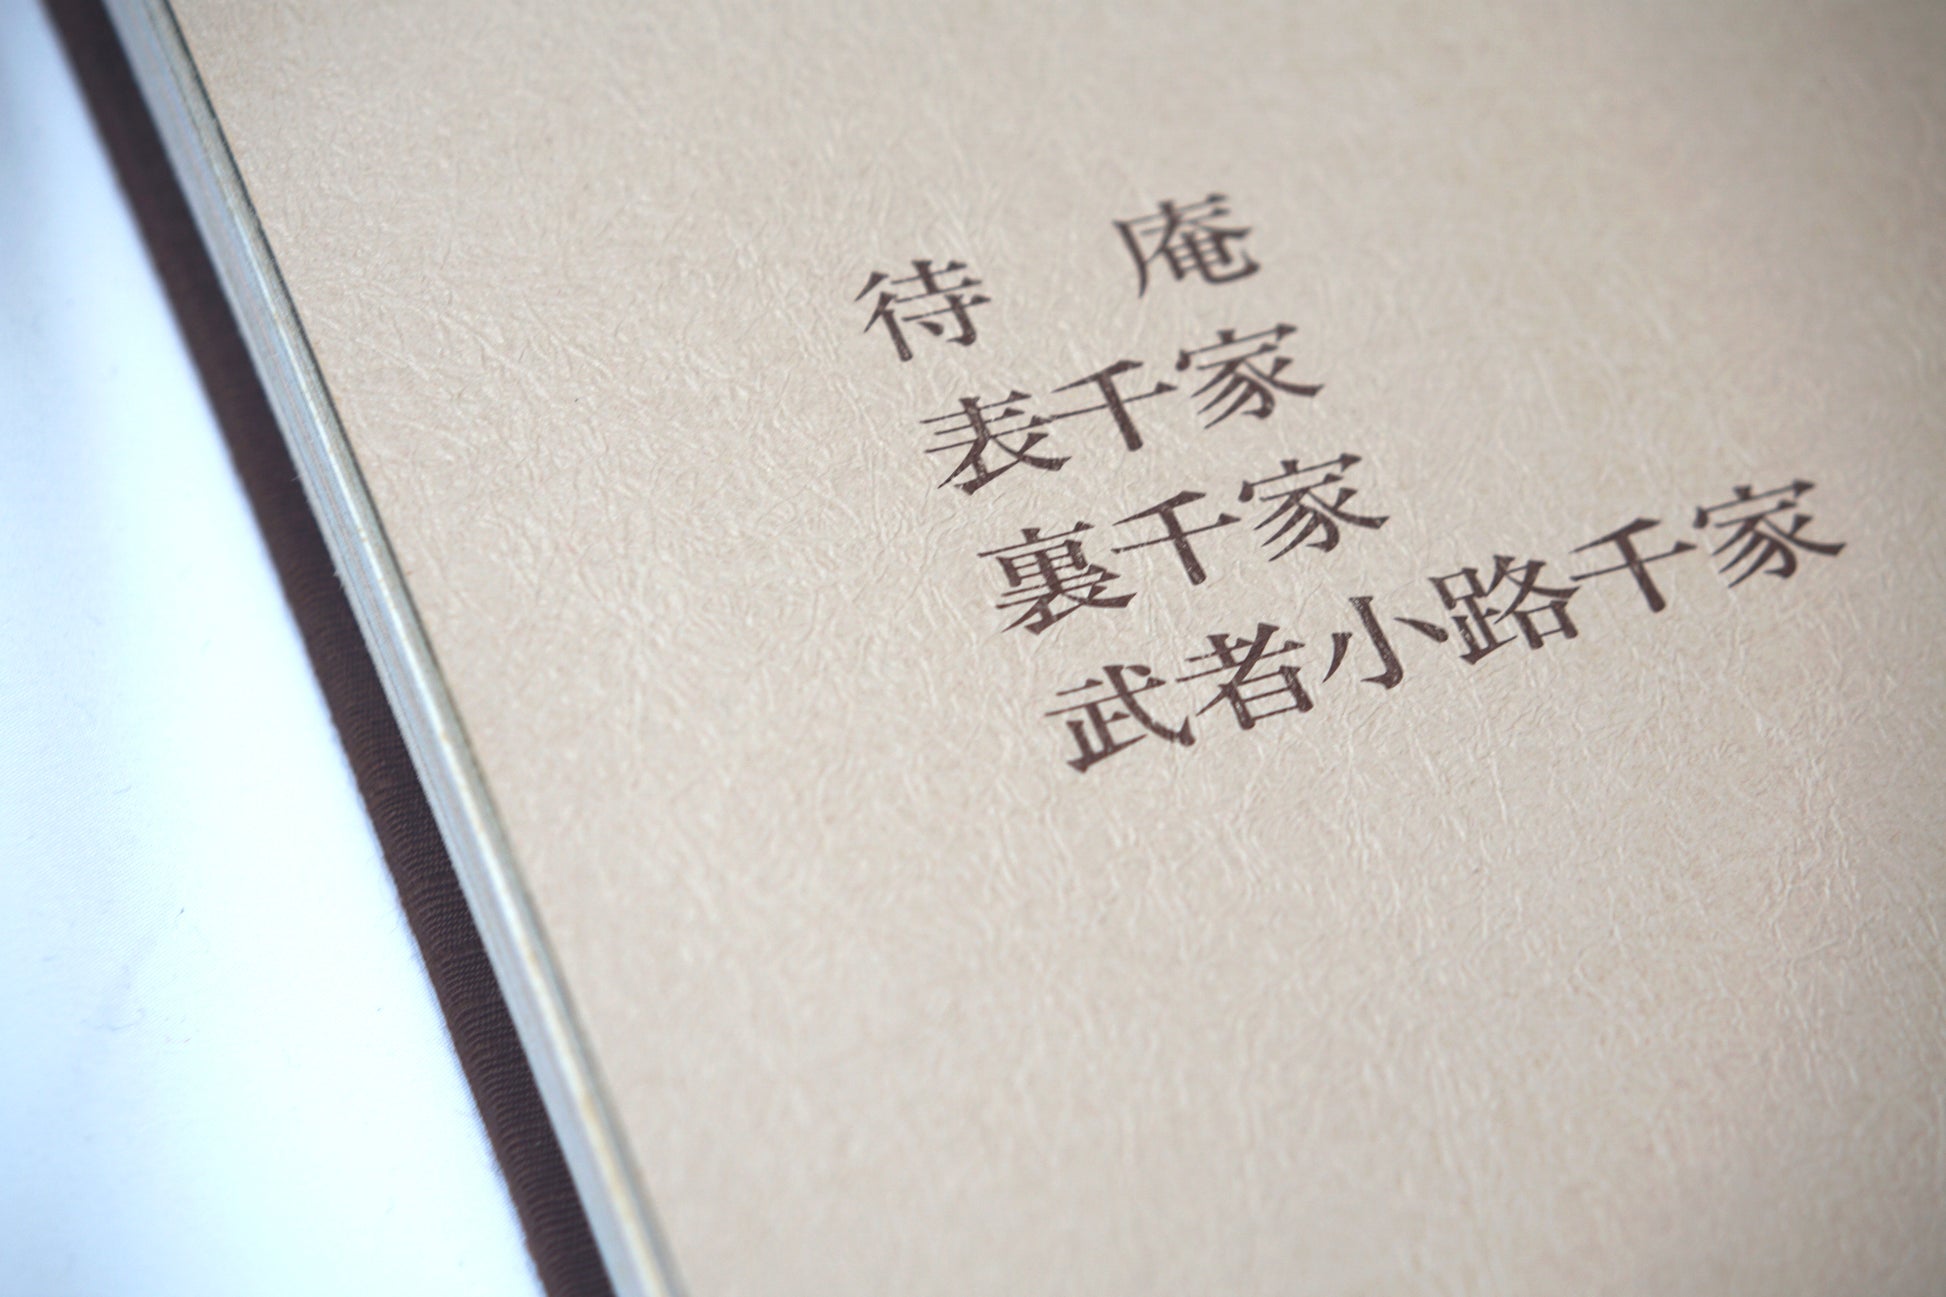 待 庵
表千家
裏千家
武者小路千家